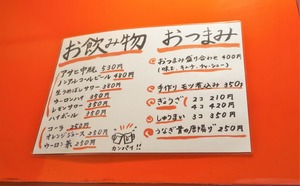 お飲み物
アサヒ中瓶 530円
ノンアルコールビール 380円
生うめぼしサワー 380円
ウーロンハイ 350円
レモンサワー 350円
ハイボール 350円
コーラ 250円
オレンジジュース 250円
ウーロン茶 250円
カンパイ!!
おつまみ
おつまみ盛り合わせ 400円
手作りモツ煮込み 350円
ぎょうざ 2コ 210円
4コ 420円
しゅうまい 3コ 350円
うなぎ骨の唐揚げ 250円